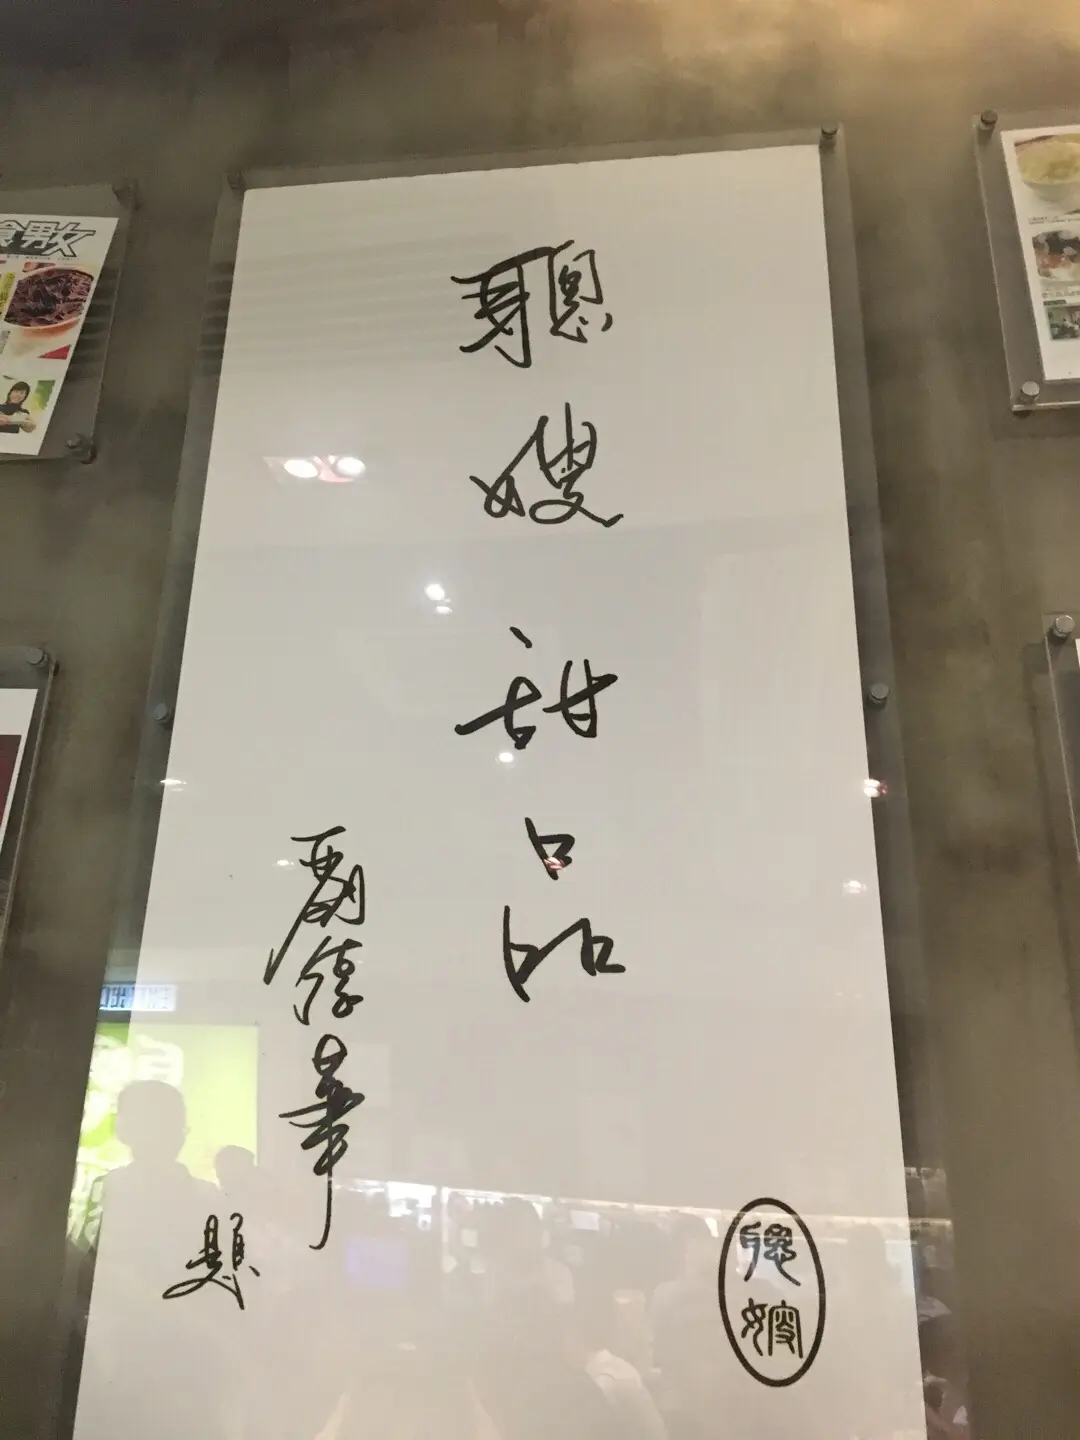 聰嫂甜品
劉德華
題
聰嫂
食男女